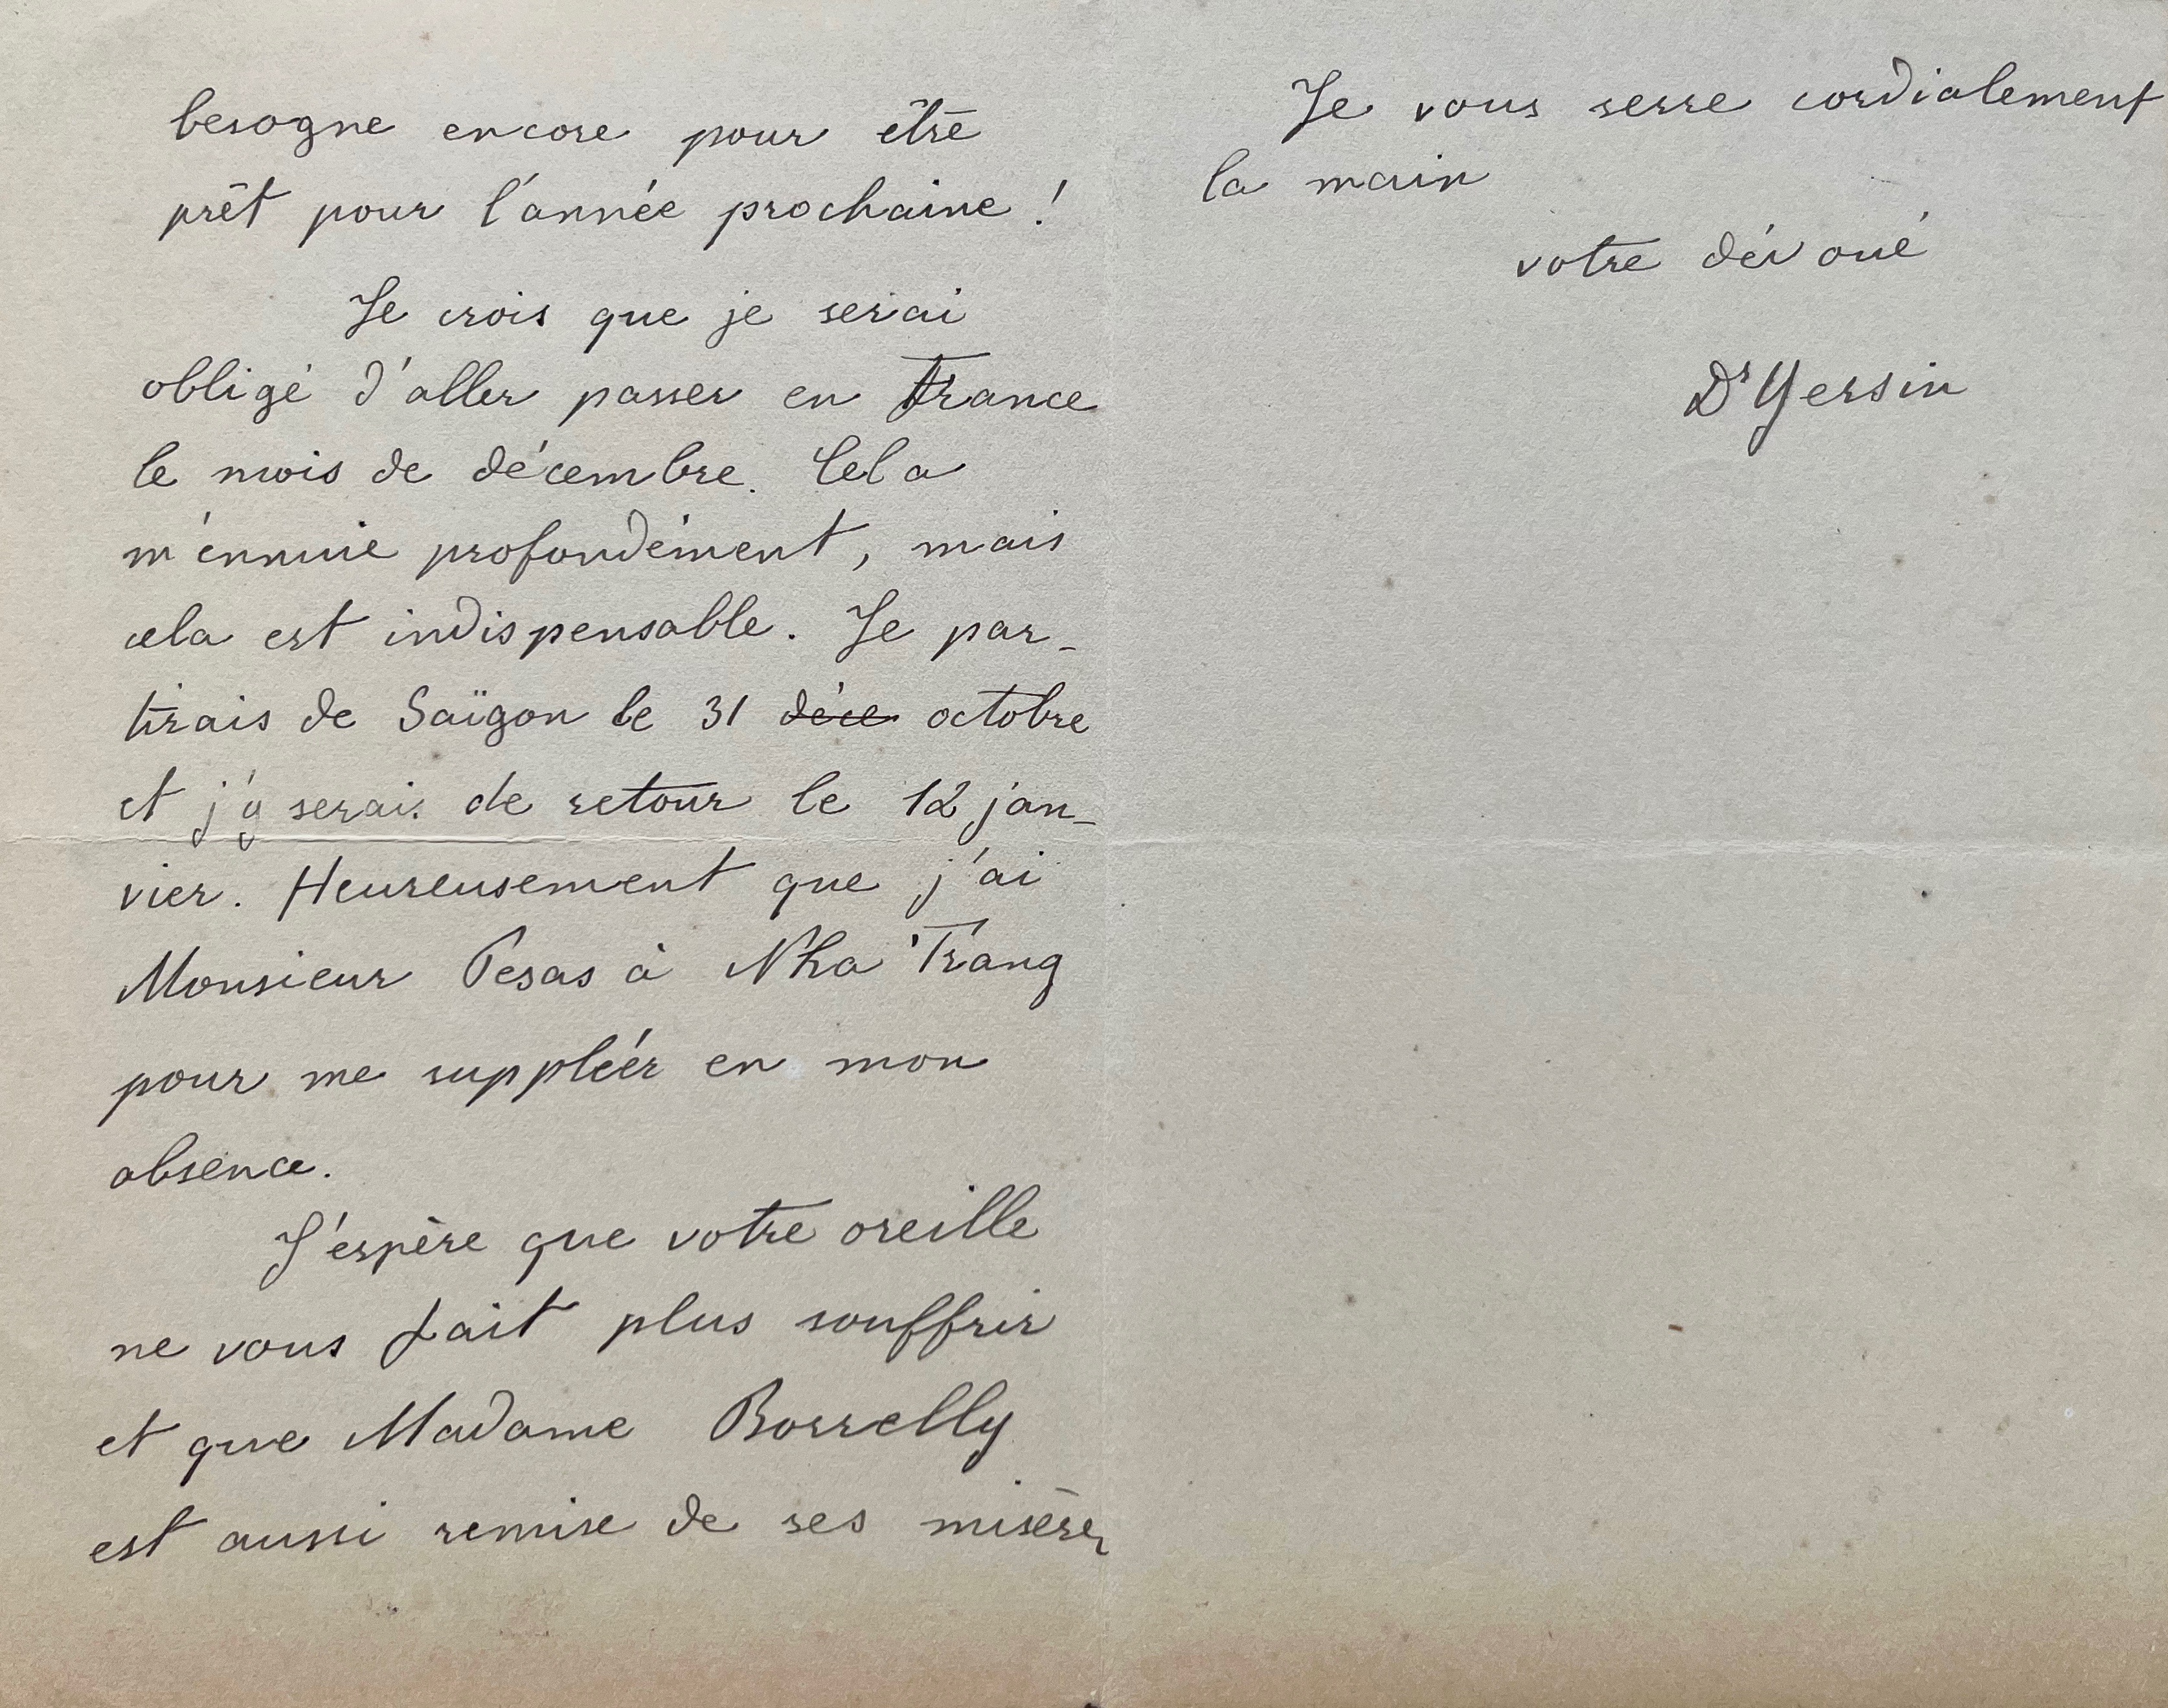 besogne encore pour être
prêt pour l'année prochaine !
Je crois que je serai
obligé d'aller passer en France
le mois de décembre. Cela
m'ennuie profondément, mais
cela est indispensable. Je par-
tirais de Saïgon le 31 déce octobre
et j'y serais de retour le 12 jan-
vier. Heureusement que j'ai
Monsieur Pesas à Nha Trang
pour me suppléer en mon
absence.
J'espère que votre oreille
ne vous fait plus souffrir
et que Madame Borrelly
est aussi remise de ses misères
Je vous serre cordialement
la main
votre dévoué
Dr Yersin